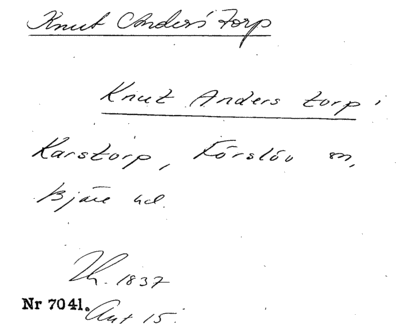 Knut Anders torp
Knut Anders torp i
Karstorp, Förslöv sn,
Bjäre hd.
Th. 1837
Nr 7041. Ant 15.